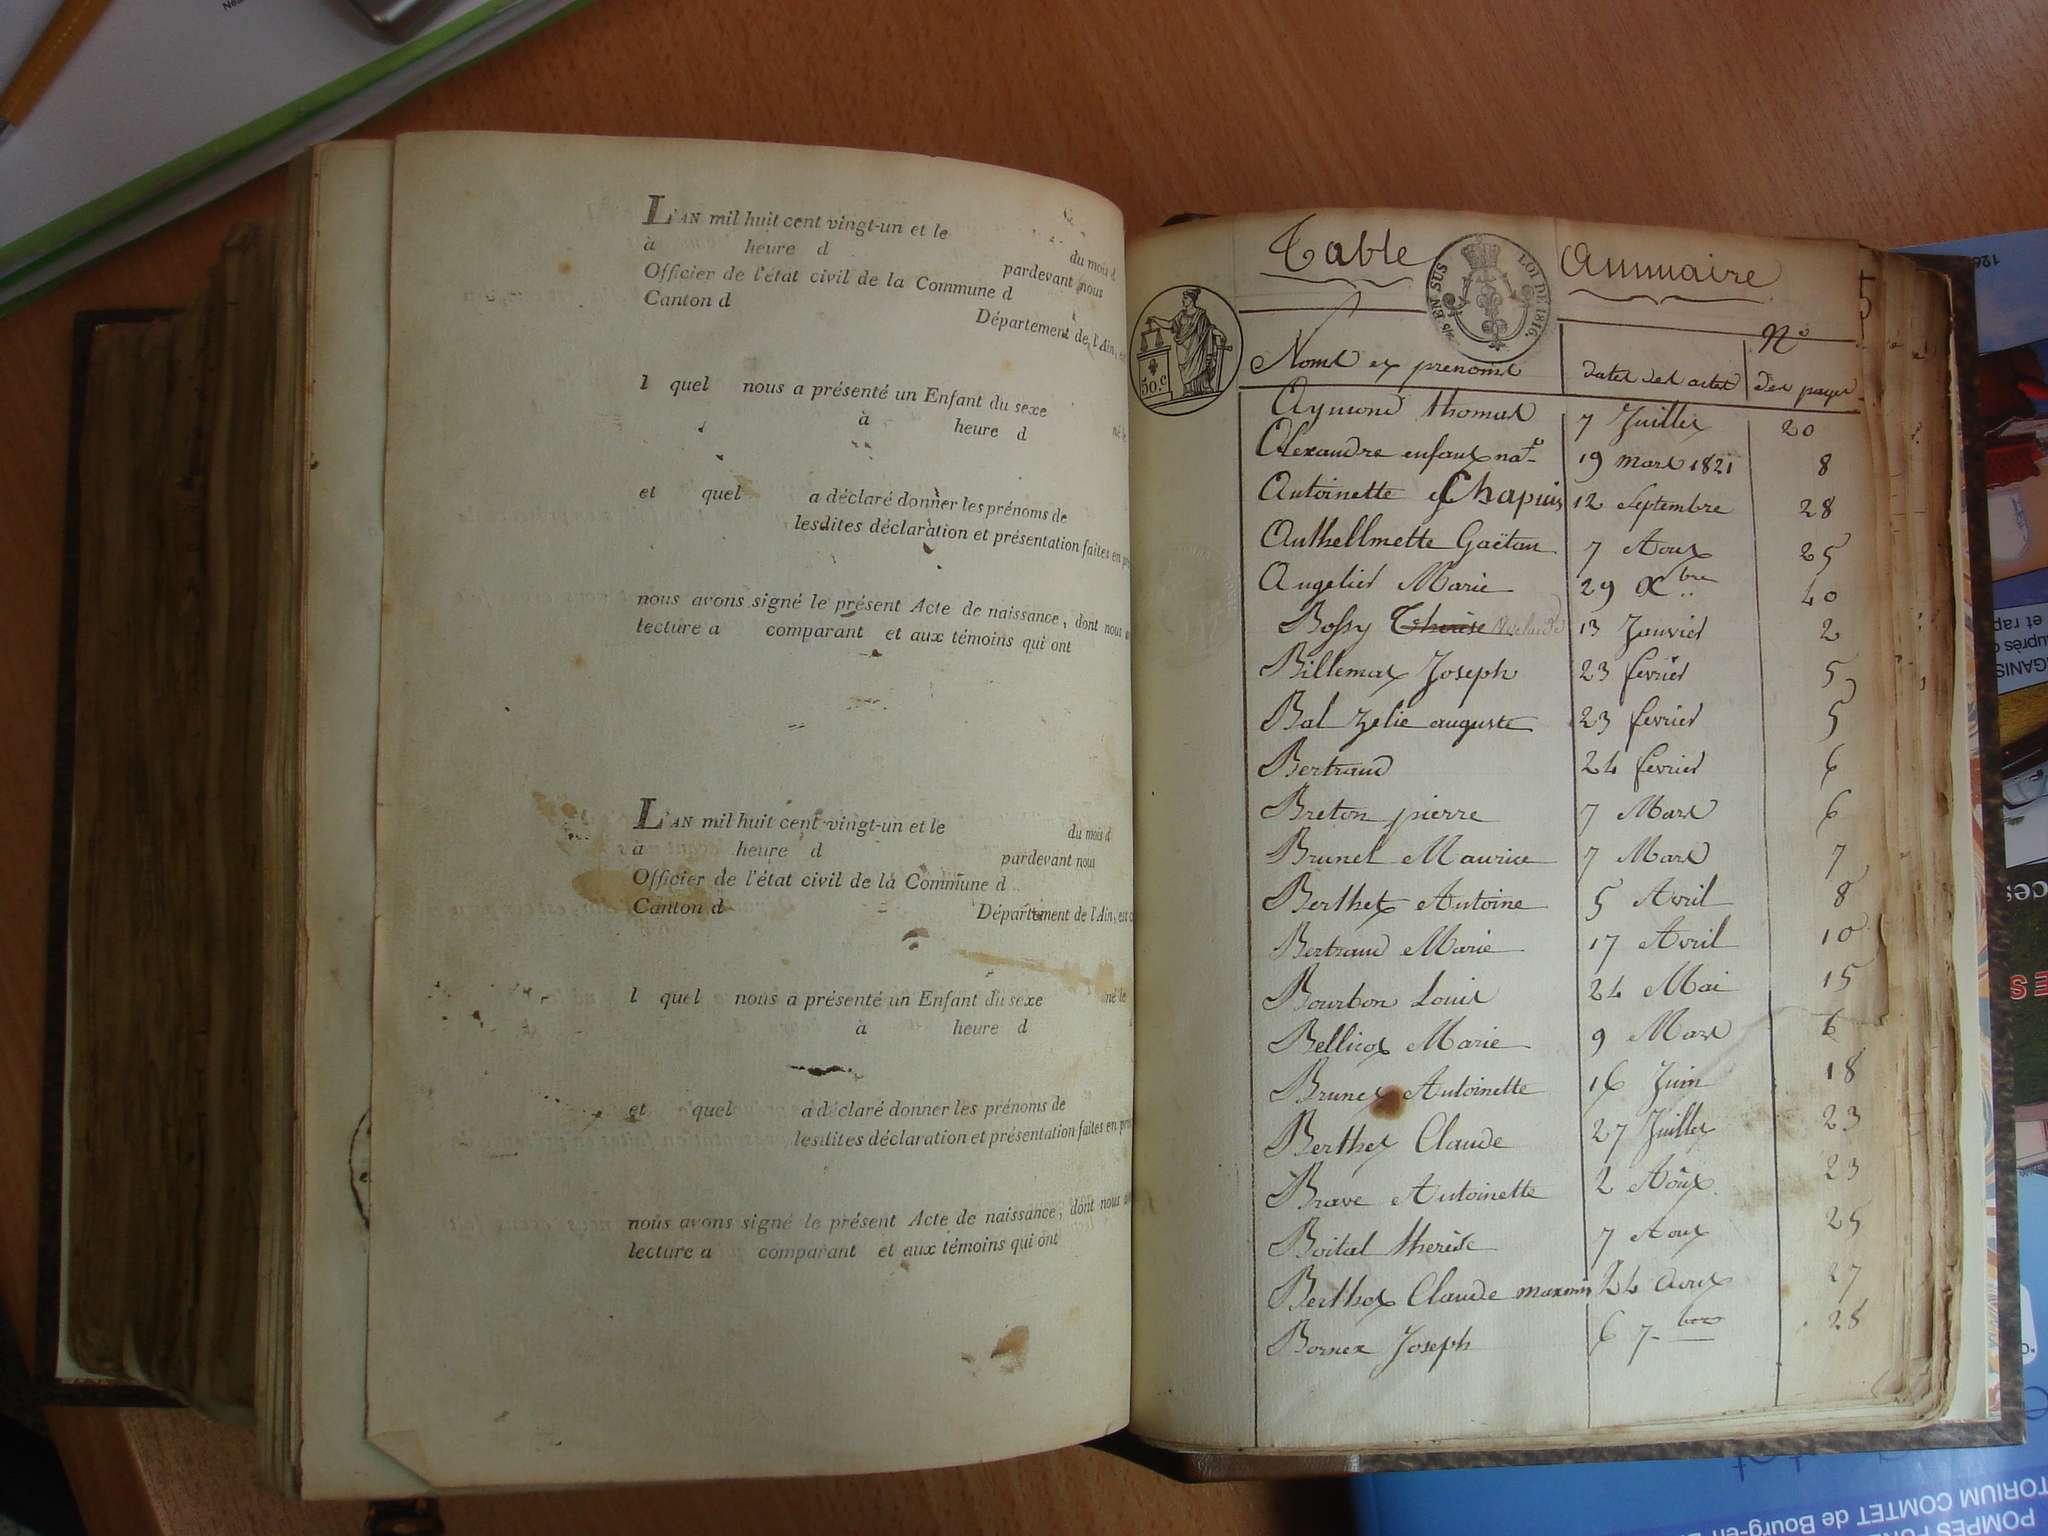 L'AN mil huit cent vingt-un et le du mois d
à heure d pardevant nous
Officier de l'état civil de la Commune d
Canton d Département de l'Ain, es
l quel nous a présenté un Enfant du sexe né le
à heure d
et quel a déclaré donner les prénoms de
lesdites déclaration et présentation faites en pré
nous avons signé le présent Acte de naissance, dont nous a
lecture a comparant et aux témoins qui ont
L'AN mil huit cent vingt-un et le du mois d
à heure d pardevant nous
Officier de l'état civil de la Commune d
Canton d Département de l'Ain, est c
l quel nous a présenté un Enfant du sexe né le
à heure d
et quel a déclaré donner les prénoms de
lesdites déclaration et présentation faites en pré
nous avons signé le présent Acte de naissance, dont nous a
lecture a comparant et aux témoins qui ont
Table Annuaire
EN SUS LOI DE 1816.
50.c
Noms et prenoms dates des actes No des pages
Aymond thomas 7 Juillet 20
Alexandre enfant nat. 19 mars 1821 8
Antoinette Chapuis 12 Septembre 28
Anthellmette Gaëtan 7 Aout 25
Angelier Marie 29 Xbre 40
Bossy Therese 13 Janvier 2
Billemas Joseph 23 fevrier 5
Bal Zelie auguste 23 fevrier 5
Bertrand 24 fevrier 6
Breton pierre 7 Mars 6
Brunet Maurice 7 Mars 7
Berthet Antoine 5 Avril 8
Bertrand Marie 17 Avril 10
Bourbon Louis 24 Mai 15
Bellicot Marie 9 Mars 6
Brunet Antoinette 16 Juin 18
Berthet Claude 27 Juillet 23
Brave Antoinette 2 Août 23
Boital therese 7 Aout 25
Berthot Claude maxmin 24 Aout 27
Bornex Joseph 6 7-bre 28
TORIUM COMTET de Bourg-en